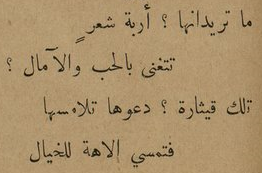 ما تريدانها ؟ أربة شعرٍ
تتغنى بالحب والآمال ؟
تلك قيثارة ؟ دعوها تلامسها
فتمسي الاهة للخيال